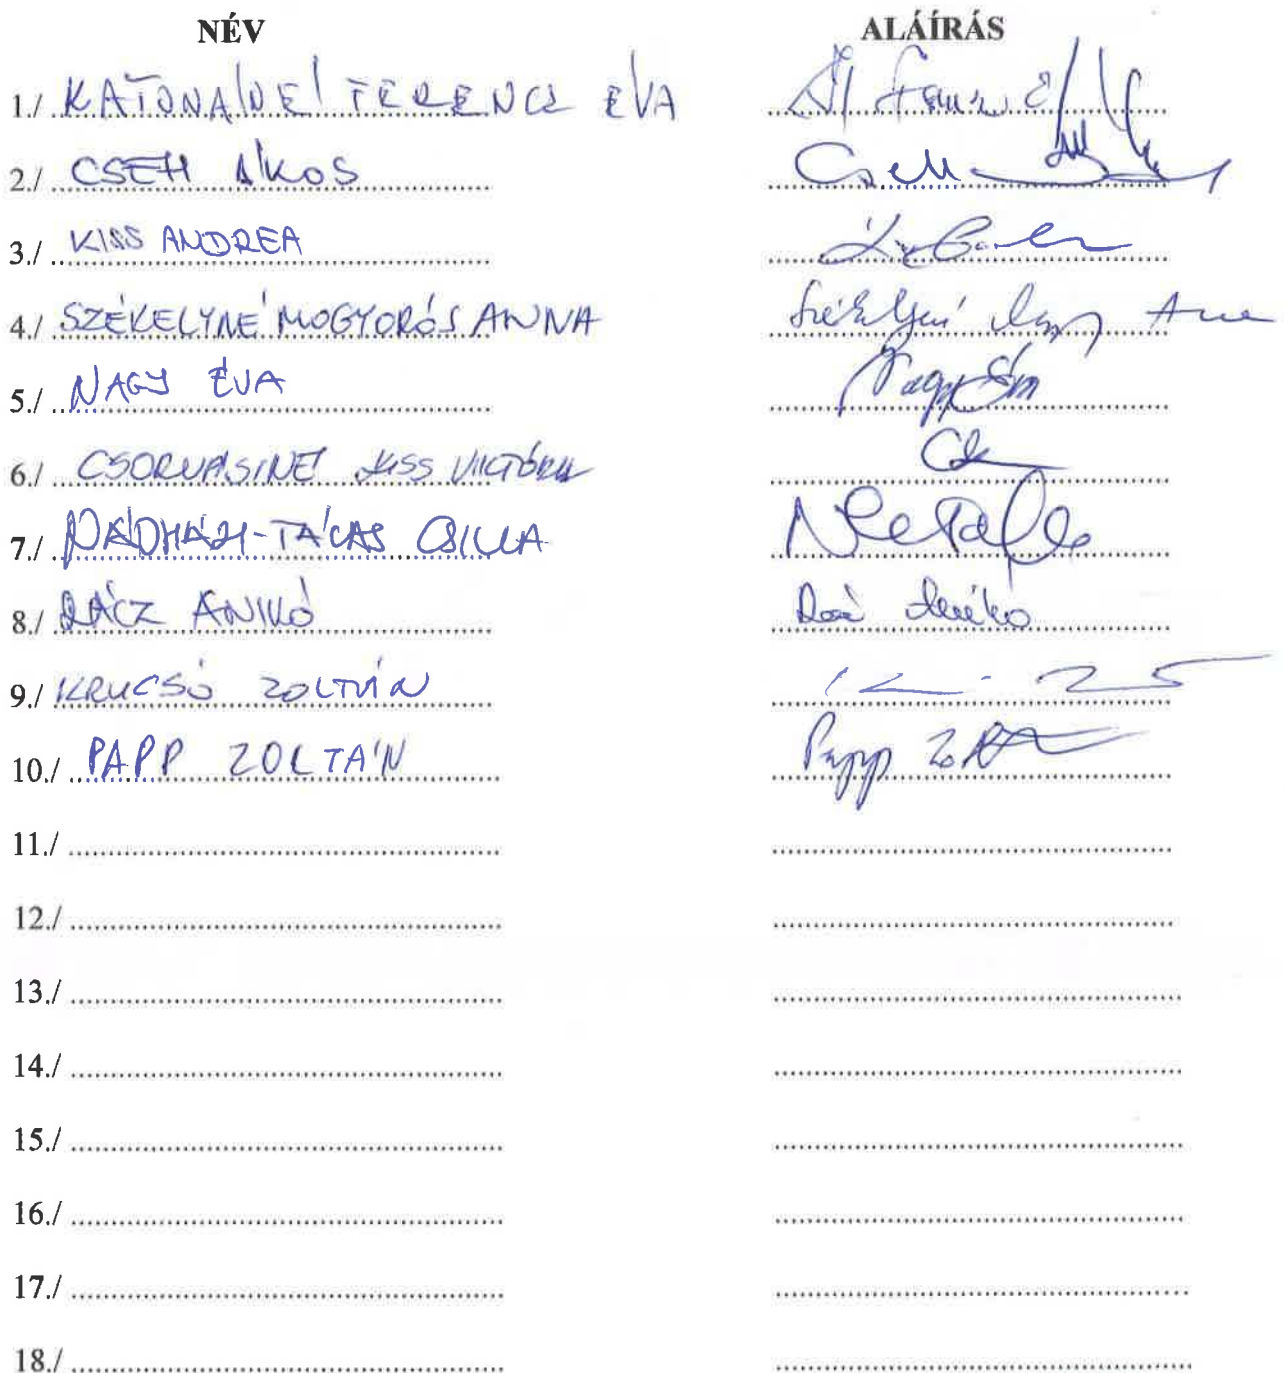 NÉV ALÁÍRÁS
1./ KATONÁNÉ FERENCZ ÉVA
2./ CSEH ÁKOS Cseh
3./ KISS ANDREA
4./ SZÉKELYNÉ MOGYORÓS ANNA Székelyné Anna
5./ NAGY ÉVA Nagy Éva
6./ CSORVÁSINÉ KISS VIKTÓRIA
7./ NÁDHÁZI-TAKÁCS CSILLA
8./ RÁCZ ANIKÓ Rácz Anikó
9./ KRUCSÓ ZOLTÁN
10./ PAPP ZOLTÁN Papp Zoltán
11./
12./
13./
14./
15./
16./
17./
18./